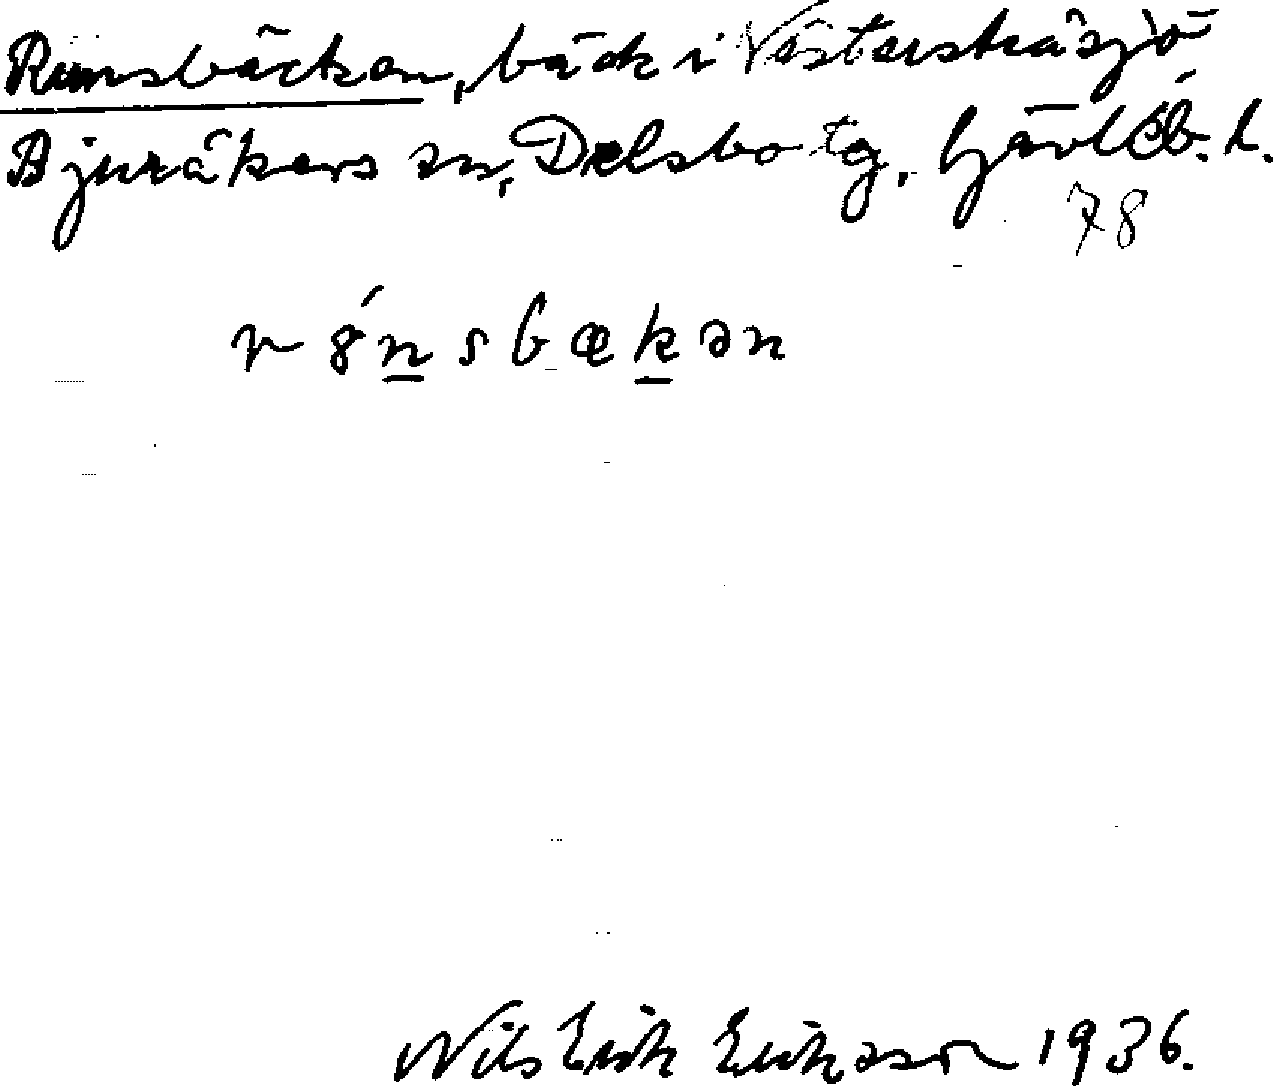 Runsbäcken, bäck i Västerstråsjö
Bjuråkers sn, Delsbo tg, Gävleb. l.
78
rȣ́nsbækən
Nils Erik Eriksson 1936.